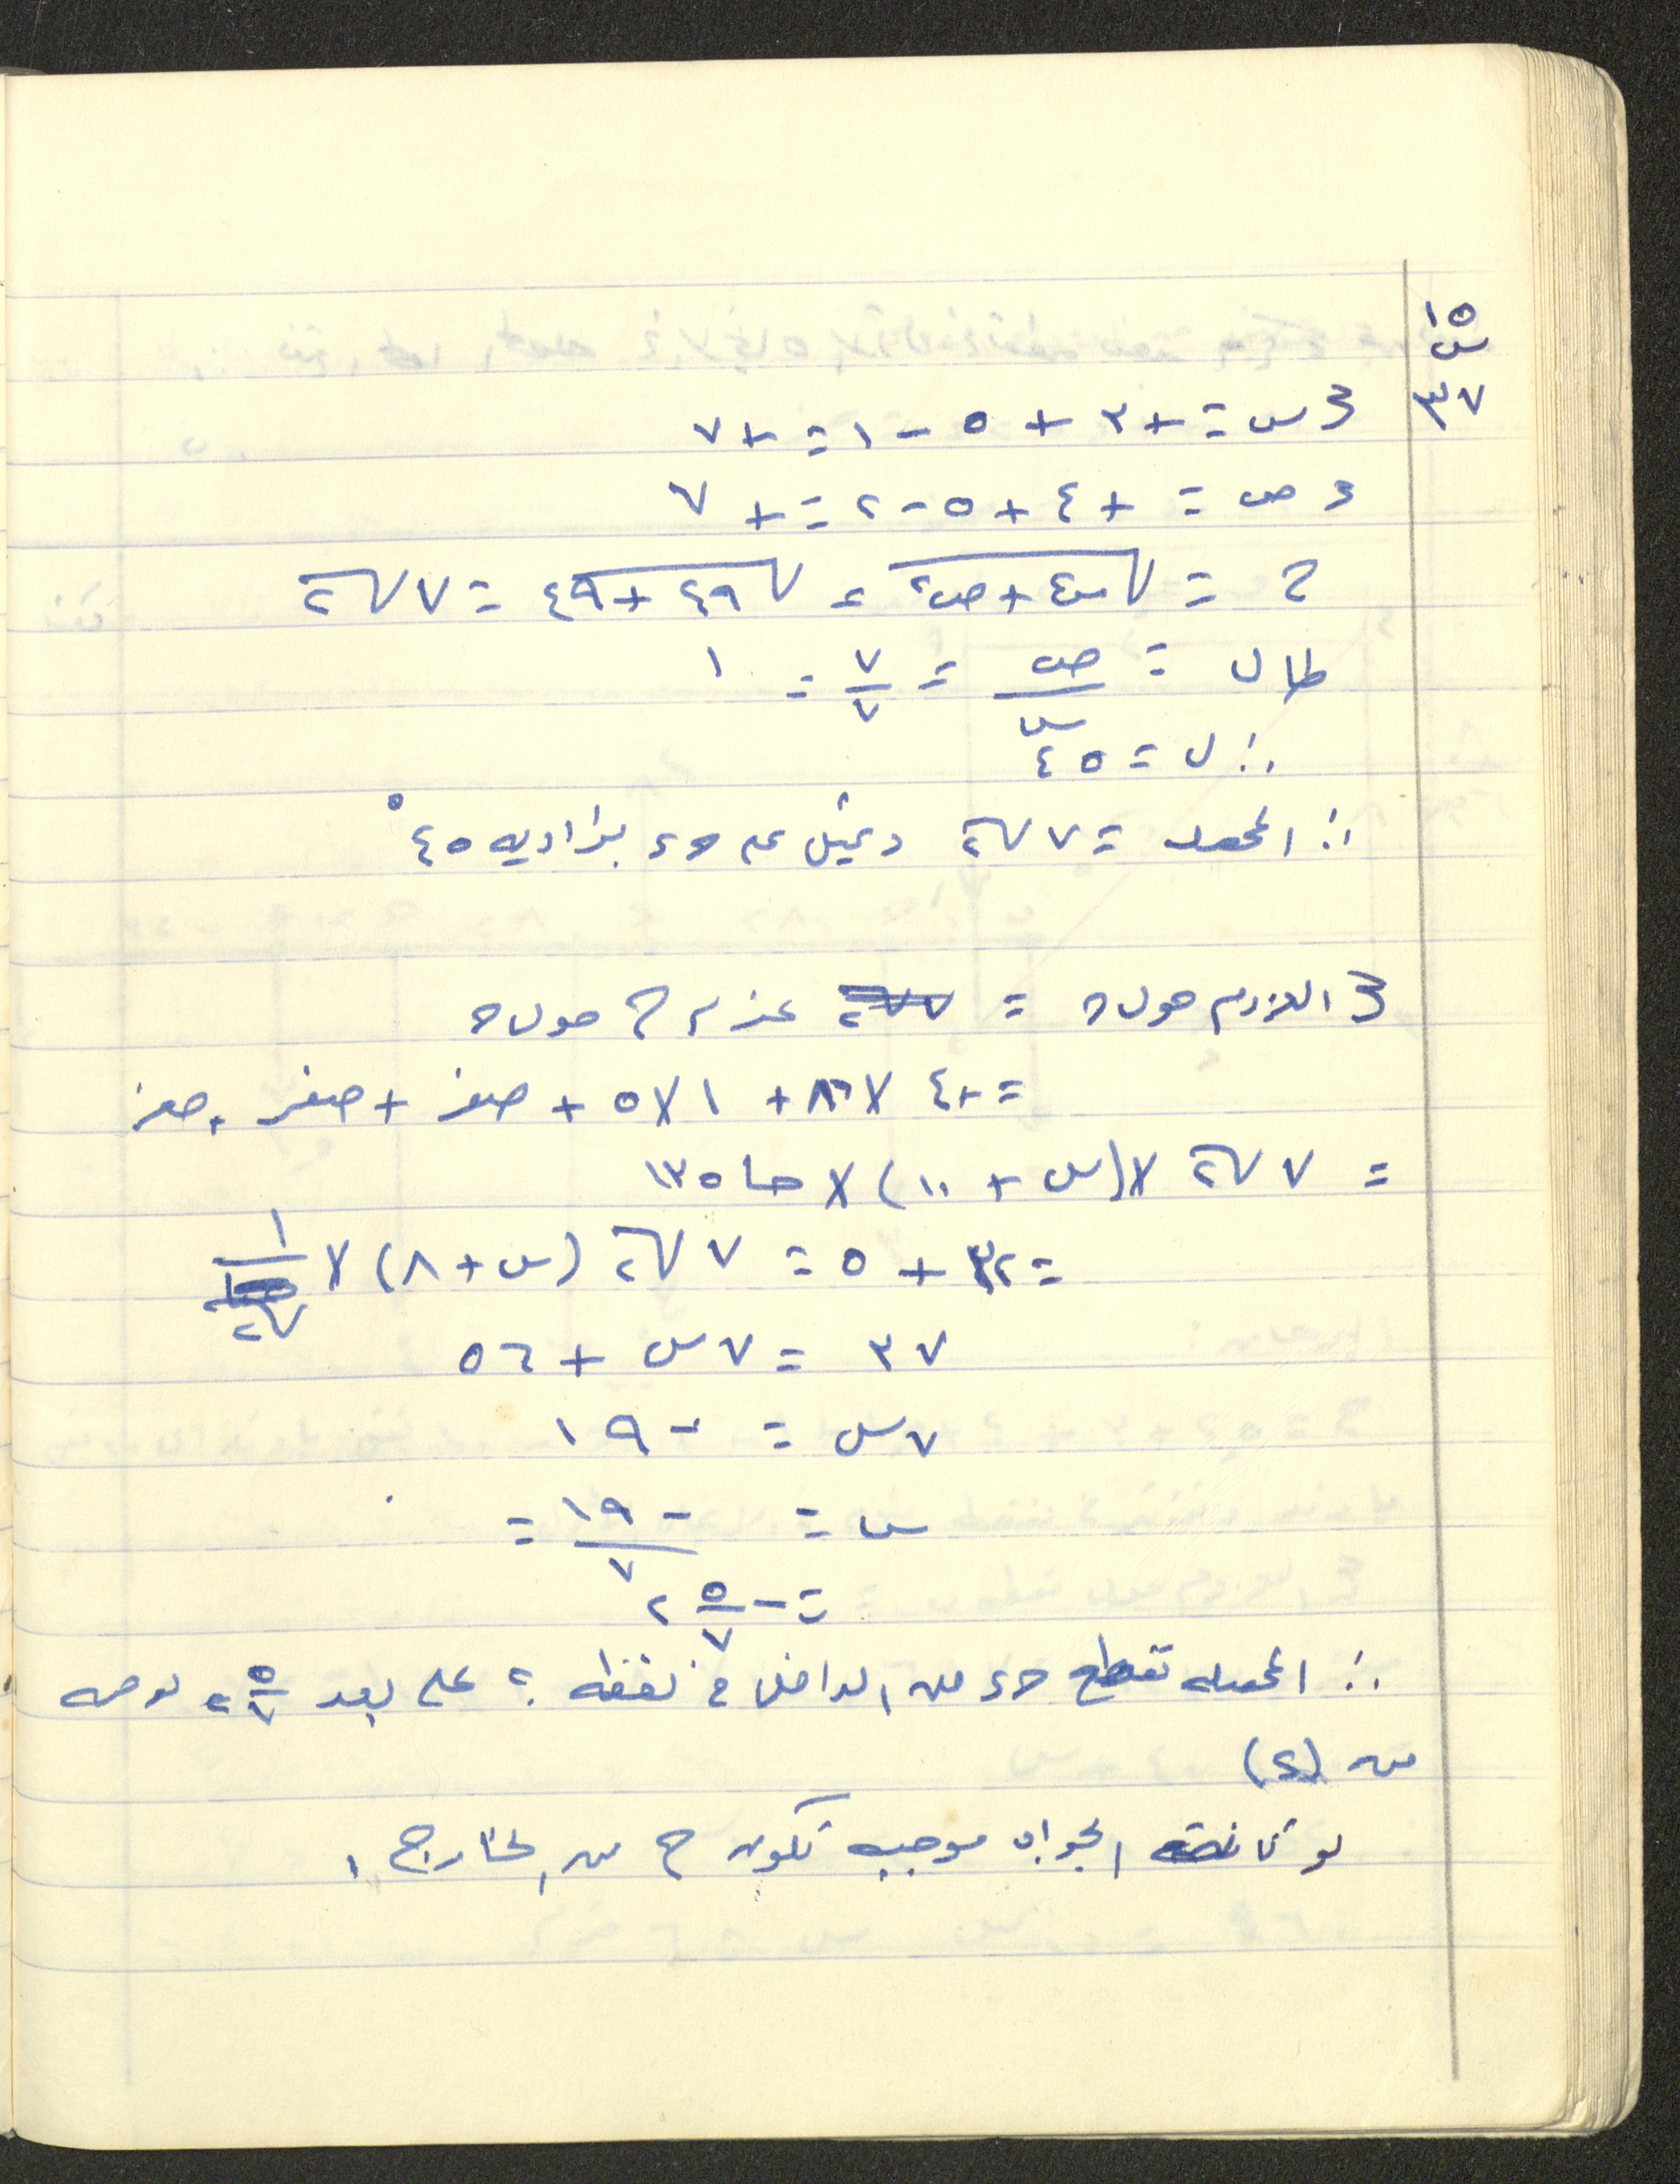 ١٥
س
٣٧
ع س = + ٣ + ٥ - ١ = + ٧
ع ص = + ٤ + ٥ - ٢ = + ٧
ح = √س٢ + ص٢ = √٤٩ + ٤٩ = ٧ √٢
طا ل = ص/س = ٧/٧ = ١
∴ ل = ٤٥
∴ المحصلة = ٧ √٢ وتميل على حـ د بزاوية ٤٥°
ع العزوم حول حـ = عزم ح حول حـ
= + ٤ × ٨ + ١ × ٥ + صفر + صفر + صفر
= ٧ √٢ × (س + ١٠) × حا ١٣٥
= ٣٢ + ٥ = ٧ √٢ (س + ٨) × ١/√٢
٣٧ = ٧ س + ٥٦
٧ س = - ١٩
س = - ١٩/٧ =
= - ٢ ٥/٧
∴ المحصلة تقطع حـ د من الداخل في نقطة ؟ على بعد ٢ ٥/٧ بوصه
من (د)
لو كانت الجواب موجبه تكون ح من الخارج